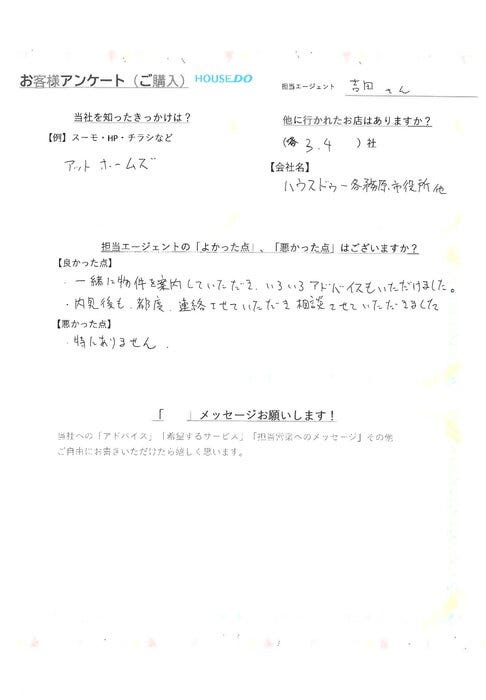 お客様アンケート（ご購入） HOUSE DO
担当エージェント 吉田 さん
当社を知ったきっかけは？
【例】スーモ・HP・チラシなど
アット ホームズ
他に行かれたお店はありますか？
( 3.4 ）社
【会社名】
ハウスドゥー各務原市役所他
担当エージェントの「よかった点」、「悪かった点」はございますか？
【良かった点】
・一緒に物件を案内していただき、いろいろアドバイスもいただけました。
・内見後も、都度、連絡させていただき相談させていただきました
【悪かった点】
・特にありません．
「　　」メッセージお願いします！
当社への「アドバイス」「希望するサービス」「担当営業へのメッセージ」その他
ご自由にお書きいただけたら嬉しく思います。